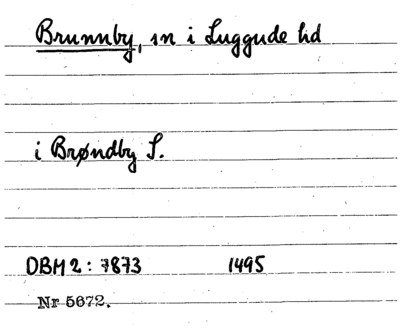 Brunnby, sn i Luggude hd
i Brøndby S.
DBM 2: 7873 1495
Nr 5672.